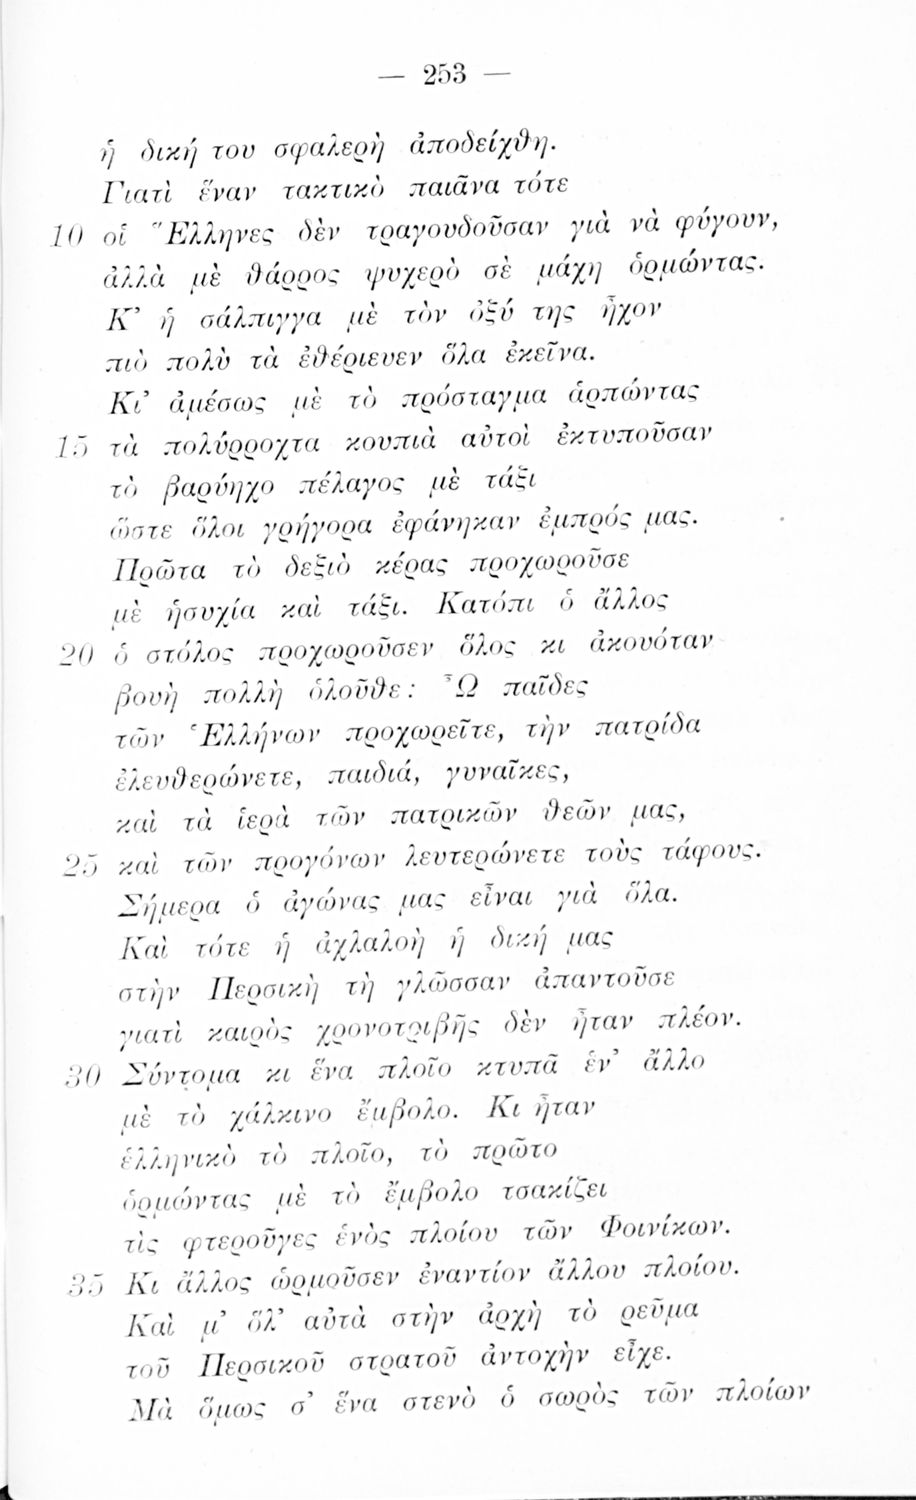 — 253 —
ἡ δική του σφαλερὴ ἀποδείχθη.
Γιατὶ ἕναν τακτικὸ παιᾶνα τότε
10 οἱ Ἕλληνες δὲν τραγουδοῦσαν γιὰ νὰ φύγουν,
ἀλλὰ μὲ θάρρος ψυχερὸ σὲ μάχη ὁρμώντας.
Κ’ ἡ σάλπιγγα μὲ τὸν ὀξύ της ἦχον
πιὸ πολὺ τὰ ἐθέριευεν ὅλα ἐκεῖνα.
Κι’ ἀμέσως μὲ τὸ πρόσταγμα ἁρπώντας
15 τὰ πολύρροχτα κουπιὰ αὐτοὶ ἐκτυποῦσαν
τὸ βαρύηχο πέλαγος μὲ τάξι
ὥστε ὅλοι γρήγορα ἐφάνηκαν ἐμπρός μας.
Πρῶτα τὸ δεξιὸ κέρας προχωροῦσε
μὲ ἡσυχία καὶ τάξι. Κατόπι ὁ ἄλλος
20 ὁ στόλος προχωροῦσεν ὅλος κι ἀκουόταν
βουὴ πολλὴ ὁλοῦθε: Ὦ παῖδες
τῶν Ἑλλήνων προχωρεῖτε, τὴν πατρίδα
ἐλευθερώνετε, παιδιά, γυναῖκες,
καὶ τὰ ἱερὰ τῶν πατρικῶν θεῶν μας,
25 καὶ τῶν προγόνων λευτερώνετε τοὺς τάφους.
Σήμερα ὁ ἀγώνας μας εἶναι γιὰ ὅλα.
Καὶ τότε ἡ ἀχλαλοὴ ἡ δική μας
στὴν Περσικὴ τὴ γλῶσσαν ἀπαντοῦσε
γιατὶ καιρὸς χρονοτριβῆς δὲν ἦταν πλέον.
30 Σύντομα κι ἕνα πλοῖο κτυπᾶ ἑν’ ἄλλο
μὲ τὸ χάλκινο ἔμβολο. Κι ἦταν
ἑλληνικὸ τὸ πλοῖο, τὸ πρῶτο
ὁρμώντας μὲ τὸ ἔμβολο τσακίζει
τὶς φτεροῦγες ἑνὸς πλοίου τῶν Φοινίκων.
35 Κι ἄλλος ὡρμοῦσεν ἐναντίον ἄλλου πλοίου.
Καὶ μ’ ὅλ’ αὐτὰ στὴν ἀρχὴ τὸ ρεῦμα
τοῦ Περσικοῦ στρατοῦ ἀντοχὴν εἶχε.
Μὰ ὅμως σ’ ἕνα στενὸ ὁ σωρὸς τῶν πλοίων